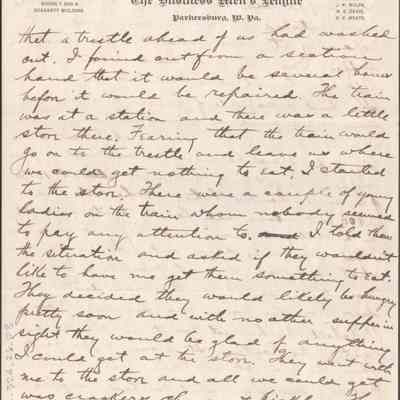 The Business Men's League
Parkersburg, W. Va.
that a trestle ahead of us had washed
out. I found out from a section
hand that it would be several hours
before it would be repaired. The train
was at a station and there was a little
store there. Fearing that the train would
go on to the trestle and leave us where
we could get nothing to eat, I started
to the store. There were a couple of young
ladies on the train whom nobody seemed
to pay any attention to. I told them
the situation and asked if they wouldn't
like to have me get them something to eat.
They decided they would likely be hungry
pretty soon and with no other supper in
sight they would be glad of anything
I could get at the store. They went with
me to the store and all we could get
was crackers